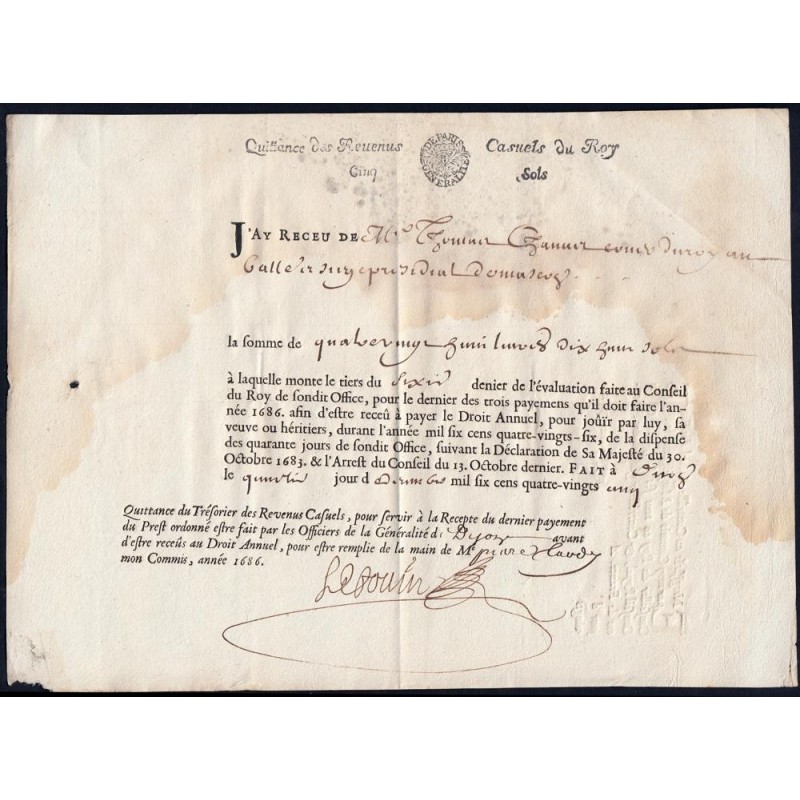 Quittance des Revenus Casuels du Roy
Cinq Sols
DE PARIS GENERALITE
J'AY RECEU DE Me Thomas
Bailliage presidial
la somme de quatrevingt huit livres dix huit sols
à laquelle monte le tiers du sixie denier de l'évaluation faite au Conseil
du Roy de sondit Office, pour le dernier des trois payemens qu'il doit faire l'an-
née 1686. afin d'estre receû à payer le Droit Annuel, pour joüir par luy, sa
veuve ou héritiers, durant l'année mil six cens quatre-vingts-six, de la dispense
des quarante jours de sondit Office, suivant la Déclaration de Sa Majesté du 30.
Octobre 1683. & l'Arrest du Conseil du 13. Octobre dernier. FAIT à
le jour d mil six cens quatre-vingts cinq
Quittance du Trésorier des Revenus Casuels, pour servir à la Recepte du dernier payement
du Prest ordonné estre fait par les Officiers de la Généralité de Dijon avant
d'estre receûs au Droit Annuel, pour estre remplie de la main de Me
mon Commis, année 1686.